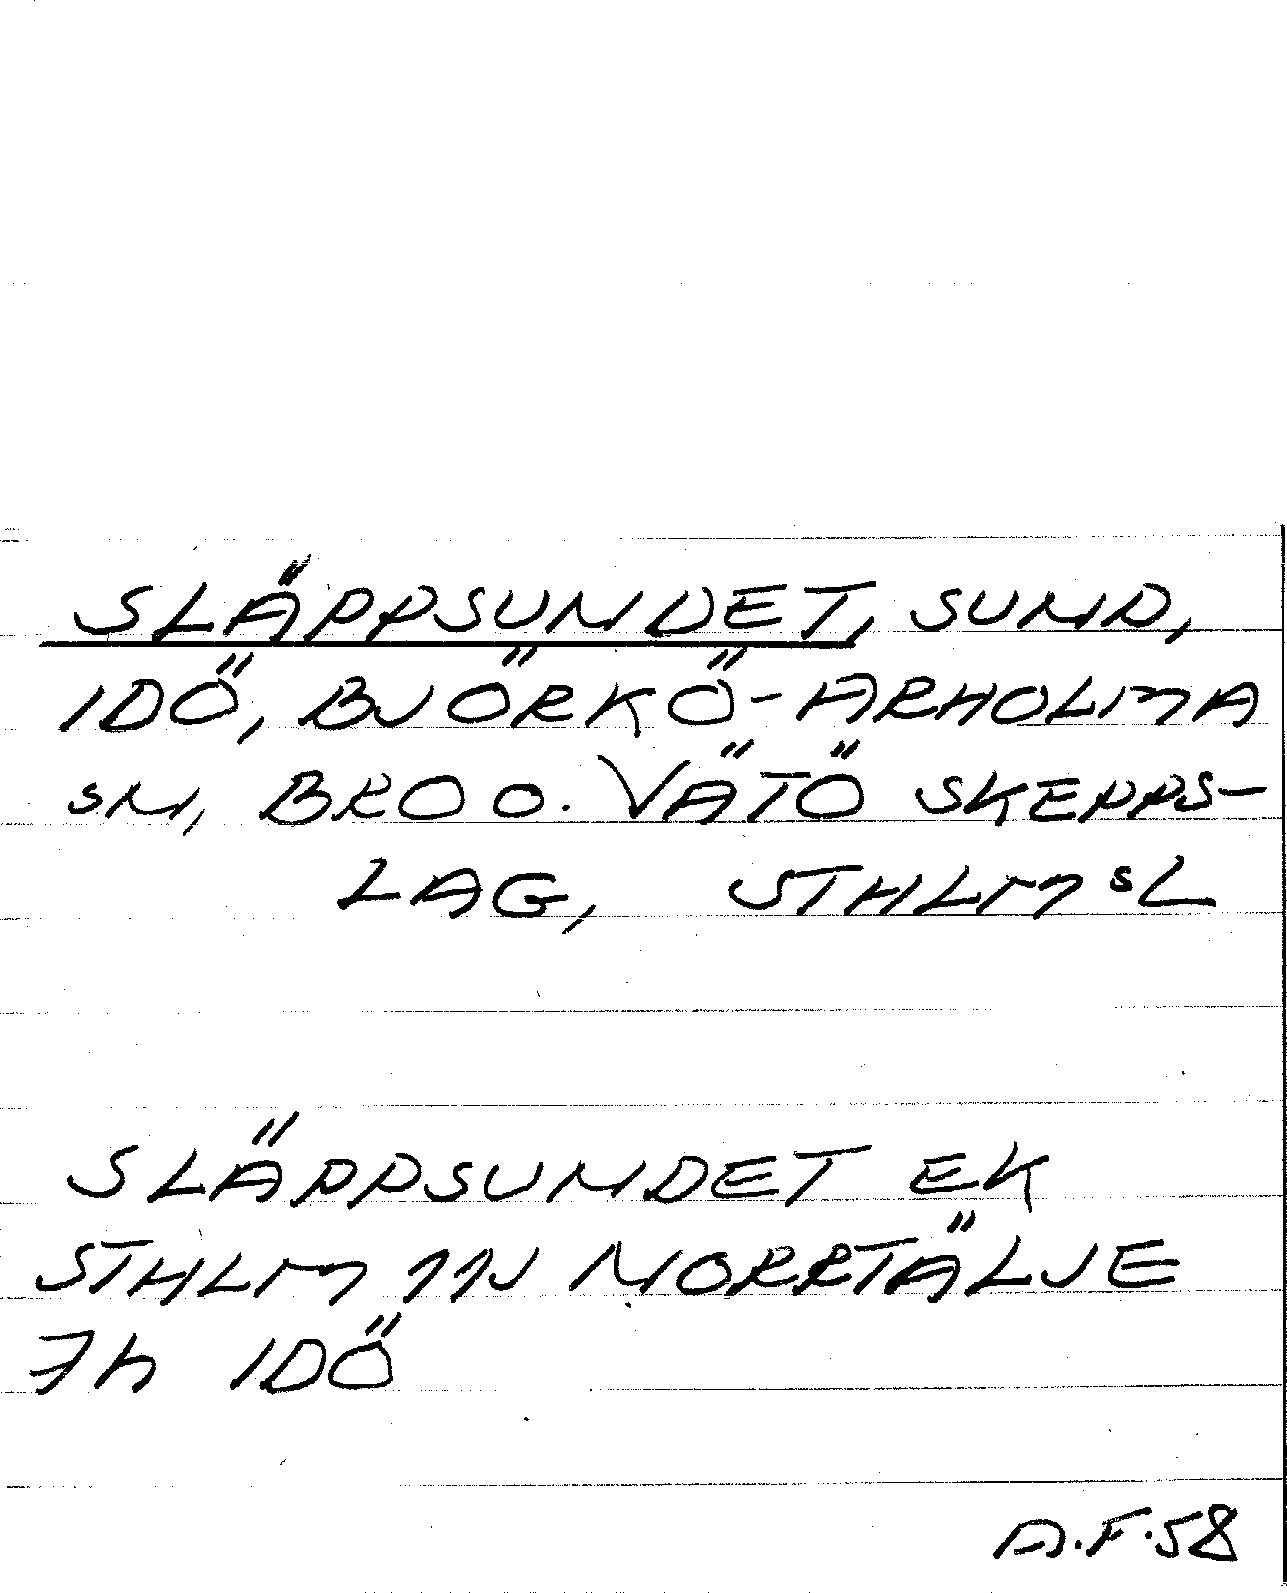 SLÄPPSUNDET, SUND,
IDÖ, BJÖRKÖ-ARHOLMA
SN, BRO O. VÄTÖ SKEPPS-
LAG, STHLMS L
SLÄPPSUNDET EK
STHLM 11J NORRTÄLJE
7h IDÖ
A.F.58